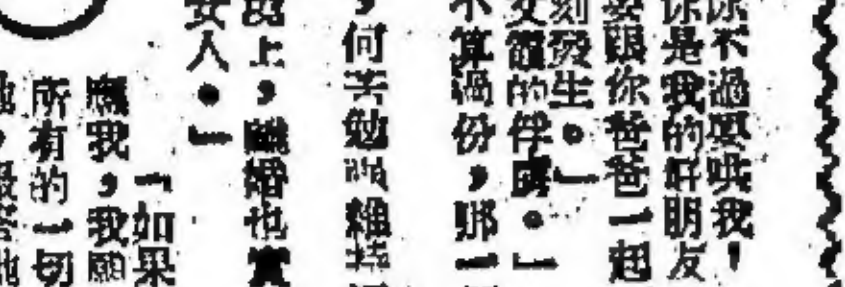 不過要哄我！
你是我的好朋友
要跟你爸爸一起
刻發生。」
的伴侶。」
不算過份，那一
，何苦勉強維持
上，離婚也實
女人。」
「如果
應我，我願
所有的一切